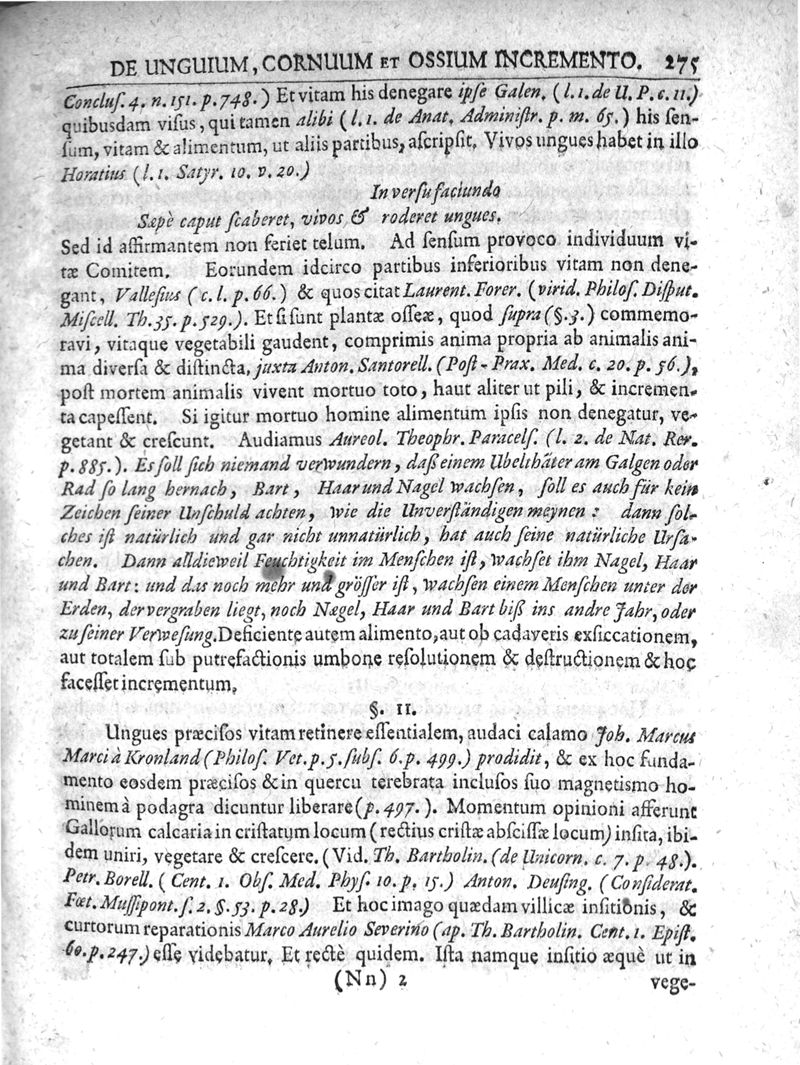 DE UNGUIUM, CORNUUM ET OSSIUM INCREMENTO. 275
Concluſ. 4. n. 151. p. 748.) Et vitam his denegare ipſe Galen. (l. 1. de U. P. c. 11.)
quibusdam viſus, qui tamen alibi (l. 1. de Anat. Adminiſtr. p. m. 65.) his ſen-
ſum, vitam & alimentum, ut aliis partibus, aſcripſit. Vivos ungues habet in illo
Horatius (l. 1. Satyr. 10. v. 20.)
In verſu faciundo
Sæpè caput ſcaberet, vivos & roderet ungues.
Sed id affirmantem non feriet telum. Ad ſenſum provoco individuum vi-
tæ Comitem. Eorundem idcirco partibus inferioribus vitam non dene-
gant, Valleſius (c. l. p. 66.) & quos citat Laurent. Forer. (virid. Philoſ. Diſput.
Miſcell. Th. 35. p. 529.). Et ſi ſunt plantæ oſſeæ, quod ſupra (§. 3.) commemo-
ravi, vitaque vegetabili gaudent, comprimis anima propria ab animalis ani-
ma diverſa & diſtincta, juxta Anton. Santorell. (Poſt-Prax. Med. c. 20. p. 56.),
poſt mortem animalis vivent mortuo toto, haut aliter ut pili, & incremen-
ta capeſſent. Si igitur mortuo homine alimentum ipſis non denegatur, ve-
getant & creſcunt. Audiamus Aureol. Theophr. Paracelſ. (l. 2. de Nat. Rer.
p. 885.). Es ſoll ſich niemand verwundern, daß einem Ubelthäter am Galgen oder
Rad ſo lang hernach, Bart, Haar und Nagel wachſen, ſoll es auch für kein
Zeichen ſeiner Unſchuld achten, wie die Unverſtändigen meynen: dann ſol-
ches iſt natürlich und gar nicht unnatürlich, hat auch ſeine natürliche Urſa-
chen. Dann alldieweil Feuchtigkeit im Menſchen iſt, wachſet ihm Nagel, Haar
und Bart: und das noch mehr und gröſſer iſt, wachſen einem Menſchen unter der
Erden, der vergraben liegt, noch Nægel, Haar und Bart biß ins andre Jahr, oder
zu ſeiner Verweſung. Deficiente autem alimento, aut ob cadaveris exſiccationem,
aut totalem ſub putrefactionis umbone reſolutionem & deſtructionem & hoc
faceſſet incrementum.
§. 11.
Ungues præciſos vitam retinere eſſentialem, audaci calamo Joh. Marcus
Marci à Kronland (Philoſ. Vet. p. 5. ſubſ. 6. p. 499.) prodidit, & ex hoc funda-
mento eosdem præciſos & in quercu terebrata incluſos ſuo magnetismo ho-
minem à podagra dicuntur liberare (p. 497.). Momentum opinioni afferunt
Gallorum calcaria in criſtatum locum (rectius criſtæ abſciſſæ locum) inſita, ibi-
dem uniri, vegetare & creſcere. (Vid. Th. Bartholin. (de Unicorn. c. 7. p. 48.).
Petr. Borell. (Cent. 1. Obſ. Med. Phyſ. 10. p. 15.) Anton. Deuſing. (Conſiderat.
Fœt. Muſſipont. ſ. 2. §. 53. p. 28.) Et hoc imago quædam villicæ inſitionis, &
curtorum reparationis Marco Aurelio Severino (ap. Th. Bartholin. Cent. 1. Epiſt.
60. p. 247.) eſſe videbatur. Et rectè quidem. Iſta namque inſitio æquè ut in
(Nn) 2 vege-